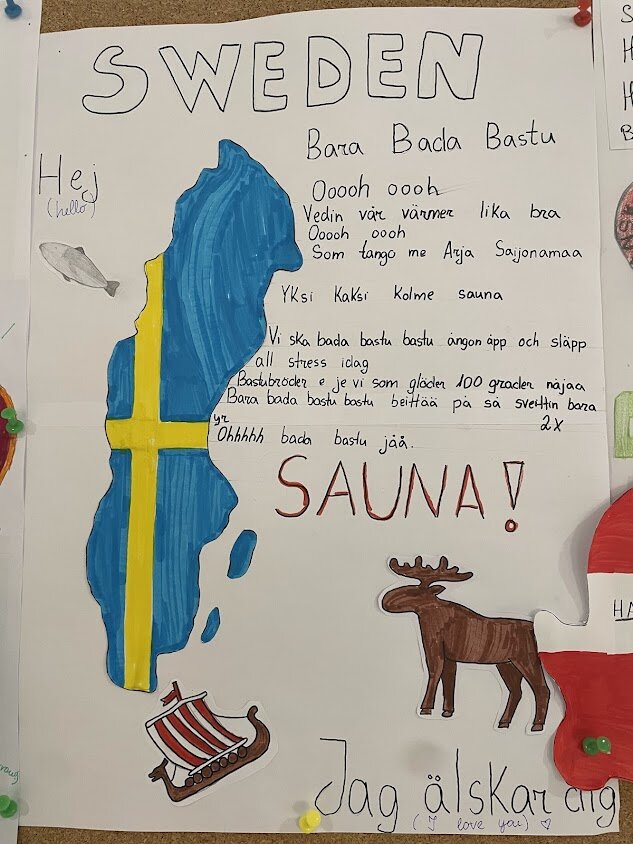 SWEDEN
Hej
(hello)
Bara Bada Bastu
Ooooh oooh
Vedin vår värmer lika bra
Ooooh oooh
Som tango me Arja Saijonamaa
YKsi Kaksi Kolme sauna
Vi ska bada bastu bastu ångon åpp och släpp
all stress idag
Bastubröder e je vi som glöden 100 graden najaa
Bara bada bastu bastu beittåå på så sveittin bara
yr 2X
Ohhhhh bada bastu jåå.
SAUNA!
Jag älskar dig
(I love you)
HA
S
H
H
B